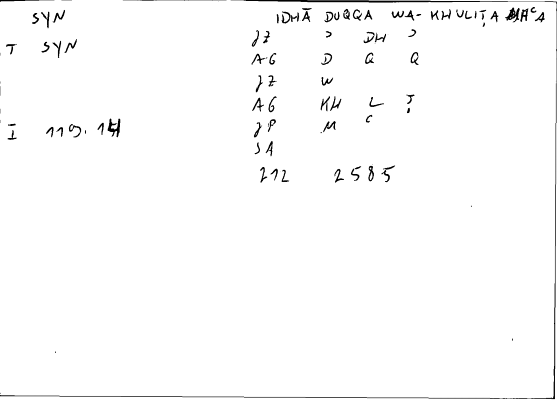 SYN IDHĀ DUQQA WA-KHULIṬA MAʿA
JZ ʾ DH ʾ
T SYN
AG D Q Q
JZ W
AG KH L Ṭ
I 119.14 JP M ʿ
SA
212 2585